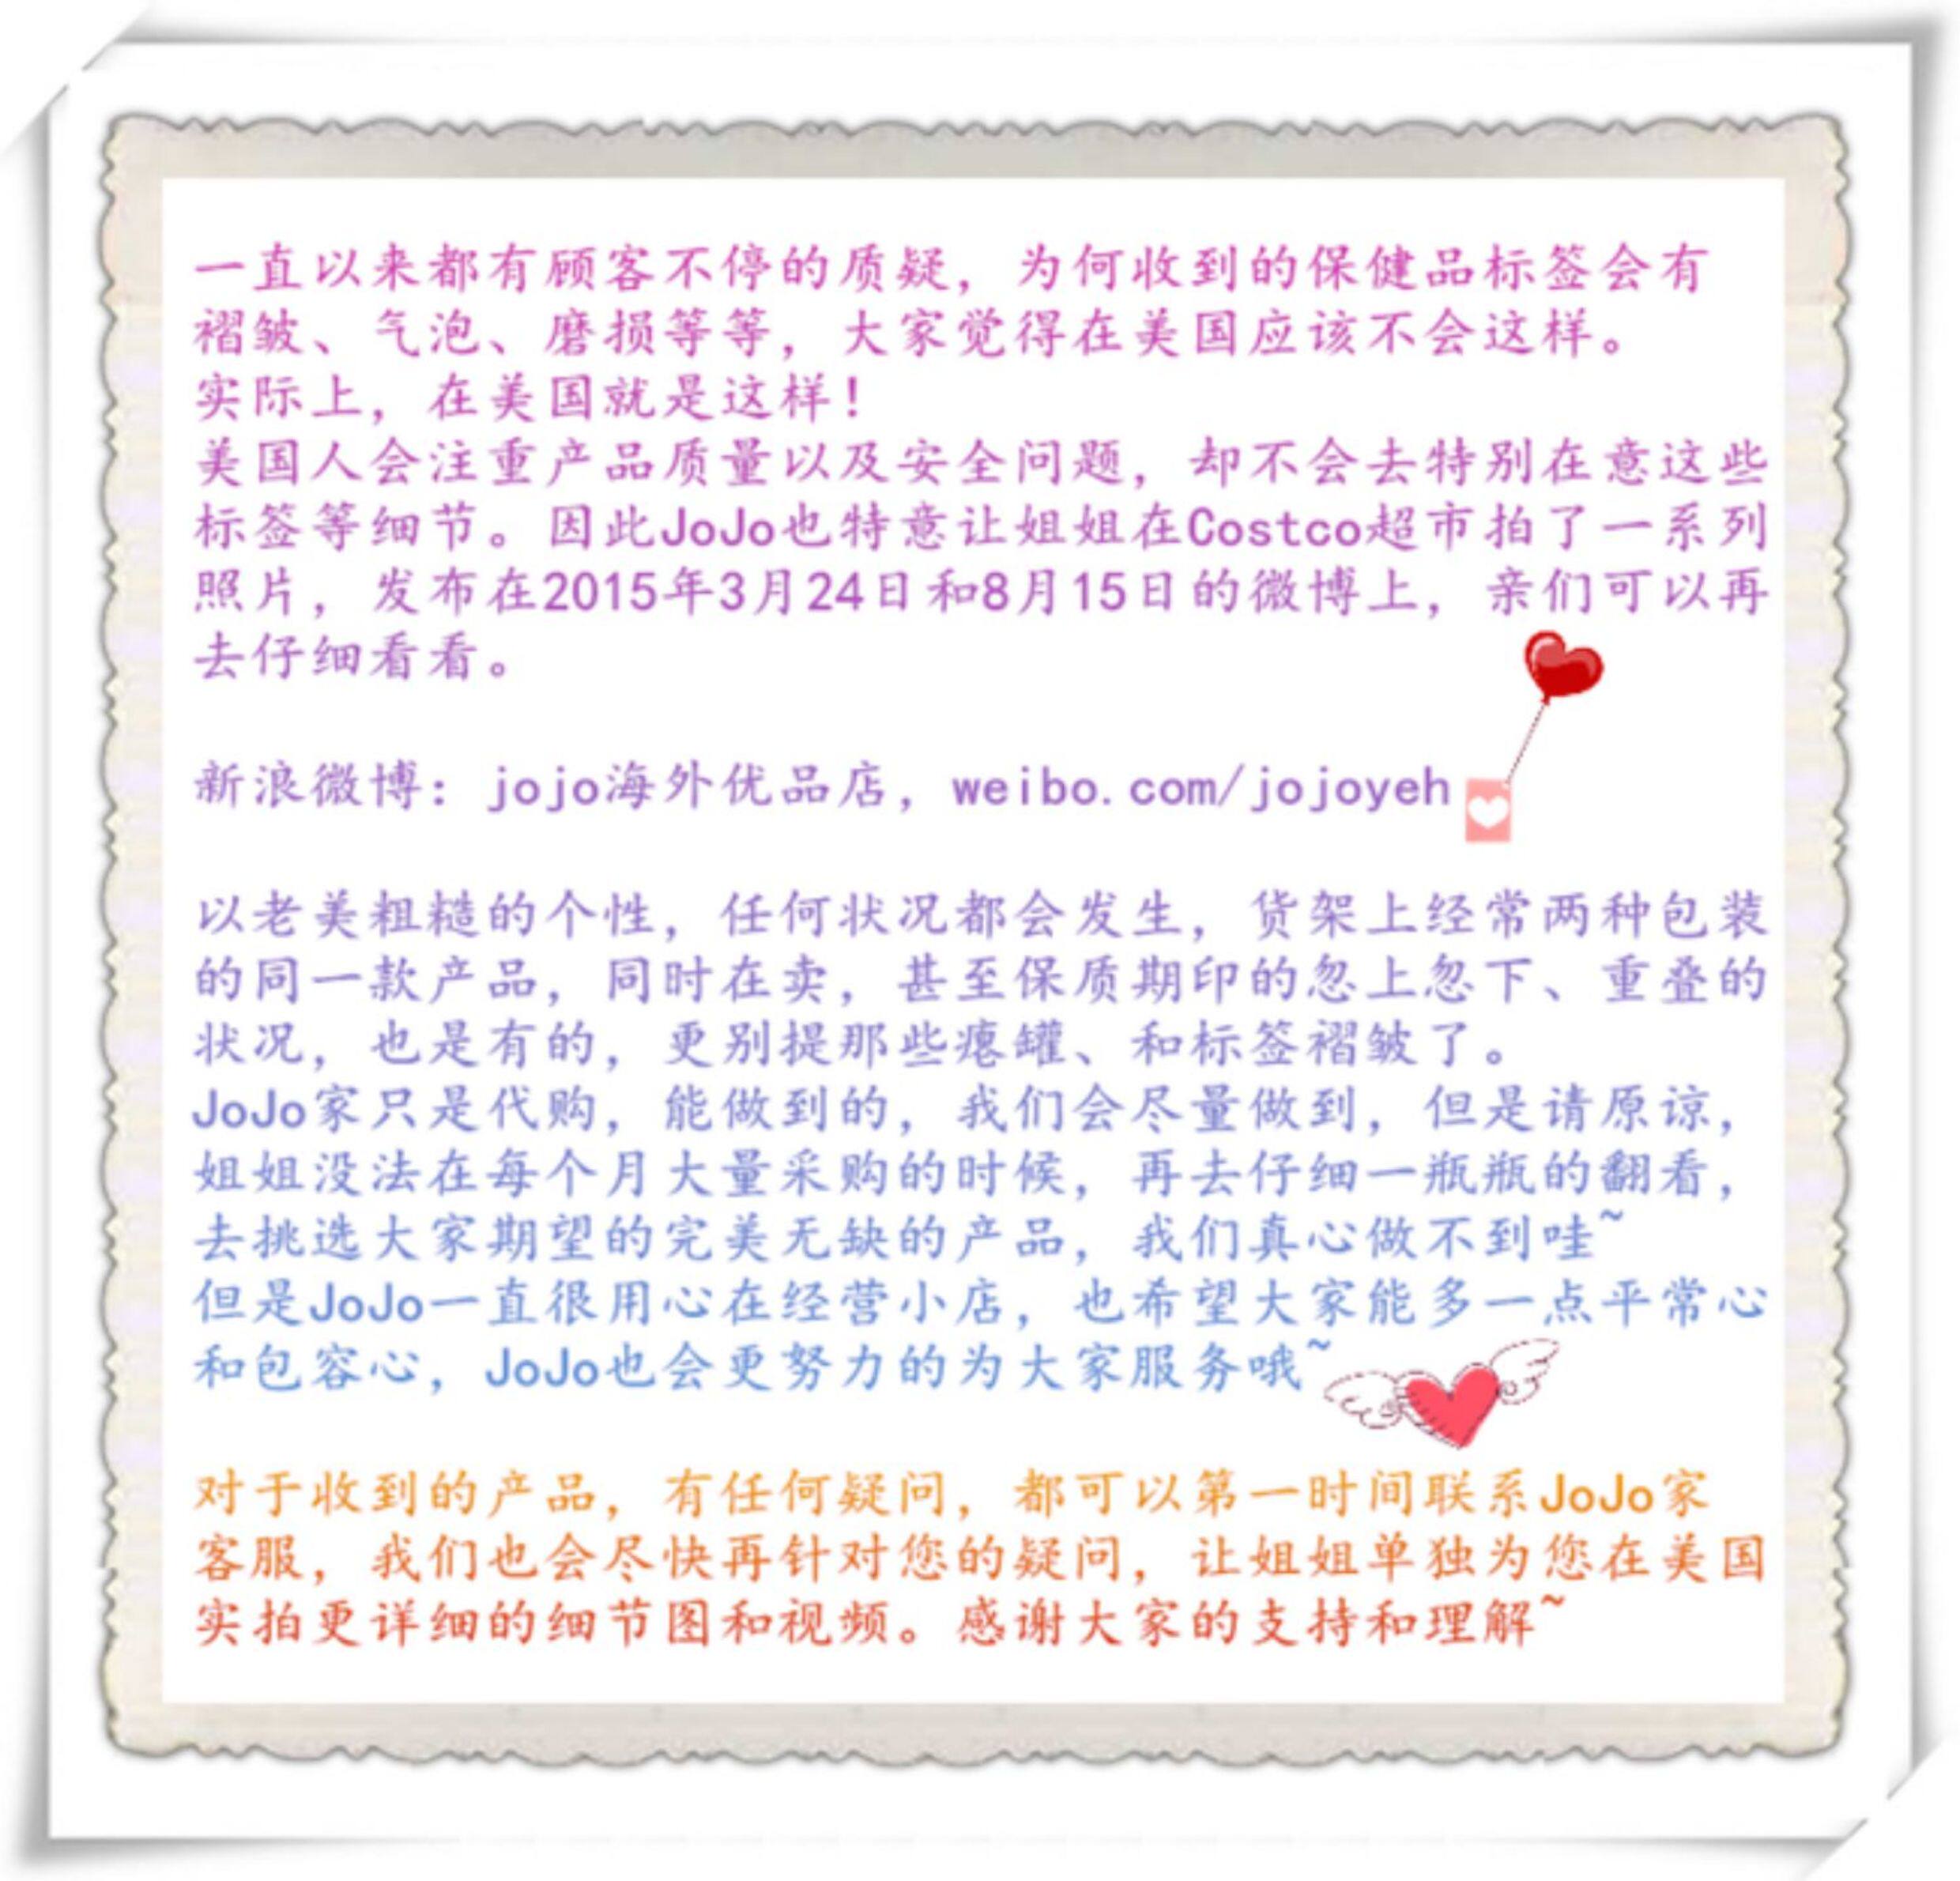 一直以来都有顾客不停的质疑，为何收到的保健品标签会有
褶皱、气泡、磨损等等，大家觉得在美国应该不会这样。
实际上，在美国就是这样！
美国人会注重产品质量以及安全问题，却不会去特别在意这些
标签等细节。因此JoJo也特意让姐姐在Costco超市拍了一系列
照片，发布在2015年3月24日和8月15日的微博上，亲们可以再
去仔细看看。
新浪微博：jojo海外优品店，weibo.com/jojoyeh
以老美粗糙的个性，任何状况都会发生，货架上经常两种包装
的同一款产品，同时在卖，甚至保质期印的忽上忽下、重叠的
状况，也是有的，更别提那些瘪罐、和标签褶皱了。
JoJo家只是代购，能做到的，我们会尽量做到，但是请原谅，
姐姐没法在每个月大量采购的时候，再去仔细一瓶瓶的翻看，
去挑选大家期望的完美无缺的产品，我们真心做不到哇~
但是JoJo一直很用心在经营小店，也希望大家能多一点平常心
和包容心，JoJo也会更努力的为大家服务哦~
对于收到的产品，有任何疑问，都可以第一时间联系JoJo家
客服，我们也会尽快再针对您的疑问，让姐姐单独为您在美国
实拍更详细的细节图和视频。感谢大家的支持和理解~